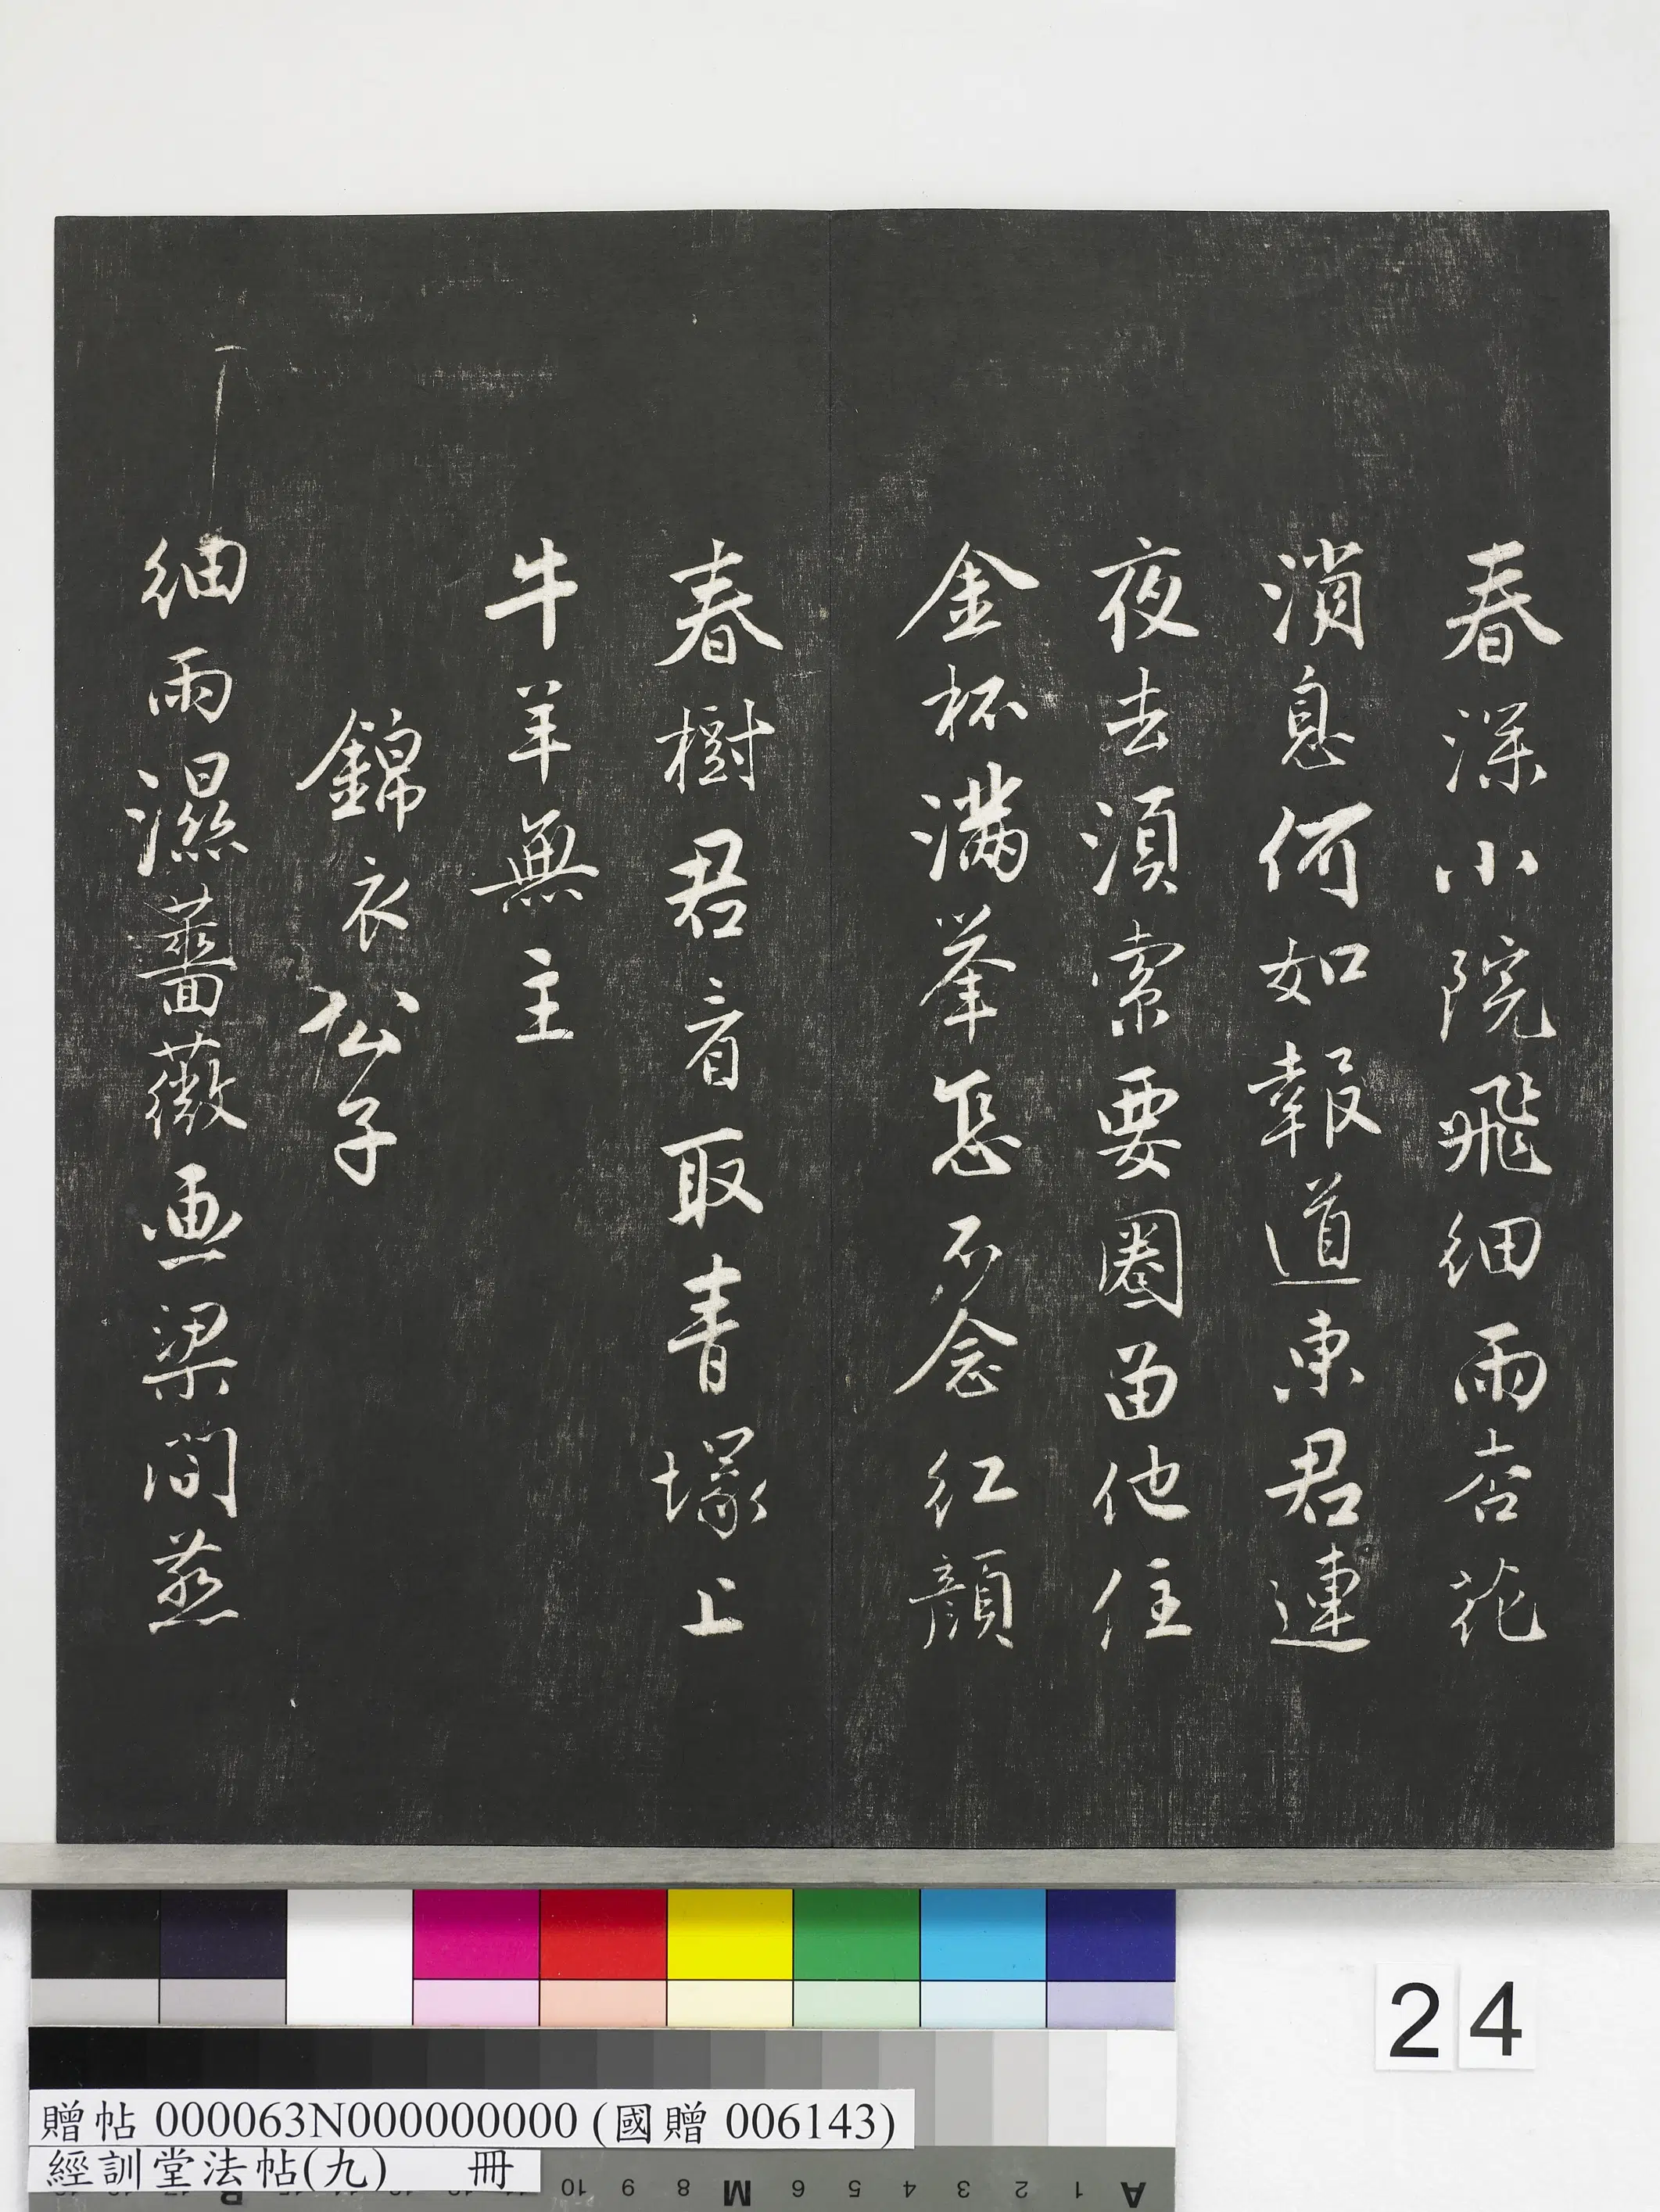 春深小院飛細雨杏花
消息何如報道東君連
夜去須索要圈留他住
金杯滿舉怎不念紅顔
春樹君看取青塚上
牛羊無主
錦衣公子
細雨濕薔薇画梁間燕
24
贈帖 000063N000000000 (國贈 006143)
經訓堂法帖(九) 冊
A 1 2 3 4 5 6 M 8 9 10